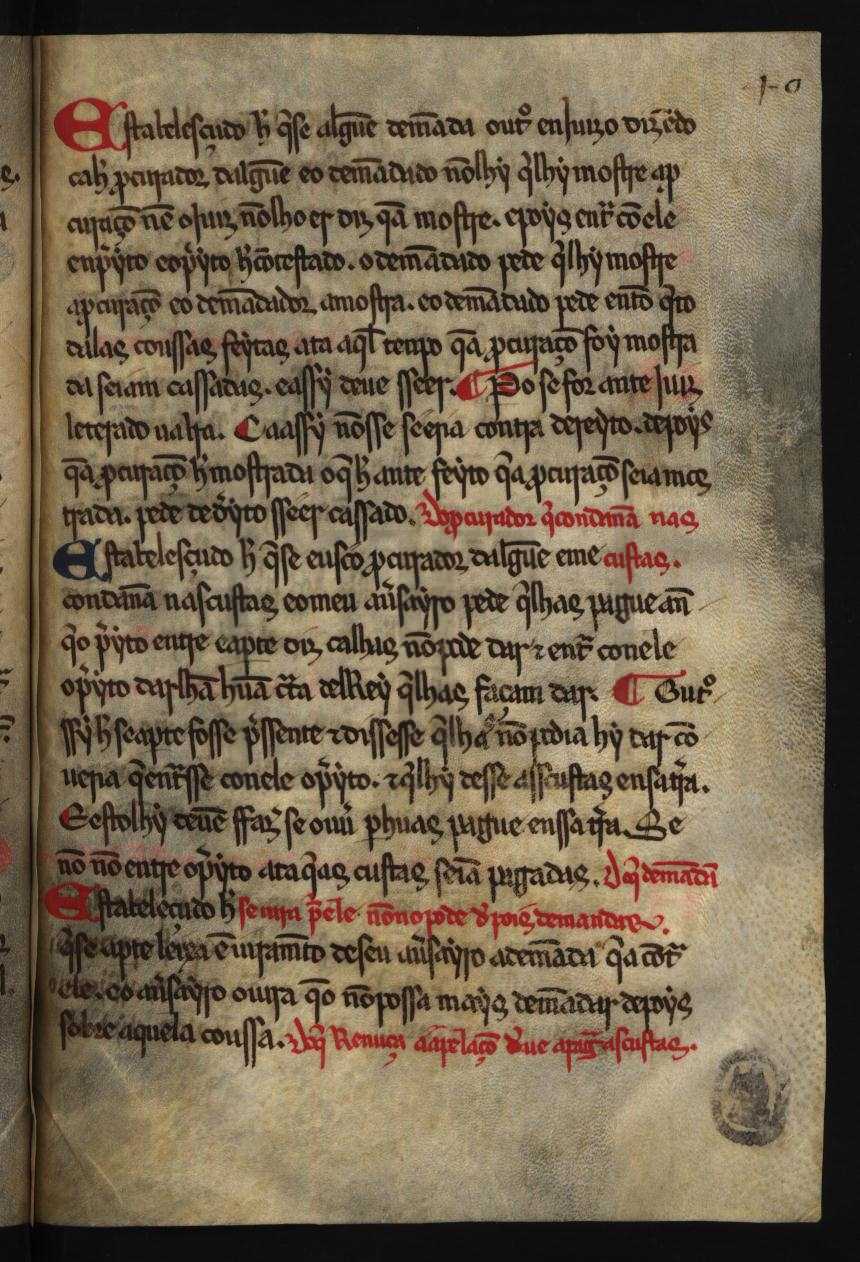 1-0
Estabelesçudo h̃ q̃ se algũe demãda outº en Juizo dizẽdo
ca h̃ p̱curador dalgũe e o demãdado nõ lhy q̃ lhy mostre a p̱
curaçõ nẽ o Juiz nõ lho er diz q̃ a mostre. e poys entr̃ cõ ele
en p̃yto e o p̃yto h̃ cõtestado. o demãdado pede q̃ lhy mostre
a p̱curaçõ e o demãdador amostra. e o demãdado pede entõ q̃ to
dalas coussas feytas ata aq̃l tempo q̃ a p̱curaçõ foy mostra
da seiam cassadas. e assy deue sseer. ¶ Po se for ante Juiz
leterado ualrra. Ca assy nõ sse seeria contra dereyto. depoys
q̃ a p̱curaçõ h̃ mostrada o q̃ h̃ ante feyto q̃ a p̱curaçõ seia mos
trada. pede de dr̃yto sseer cassado. Do p̱curador q̃ condãnã nas
Estabelesçudo h̃ q̃ se eu sco p̱curador dalgũe e me custas.
condãnã nas custas e o meu au̇sayro pede q̃ lhas pague an̄
q̃ o p̃yto entre e a p̱te diz ca lhas nõ pode dar ⁊ entr̃ con ele
o p̃yto dar lhã hũa cr̃ta del Rey q̃ lhas façam dar. ¶ Outº
ssy h̃ se a p̱te fosse p̃ssente ⁊ dissesse q̃ lhas nõ podia hy dar cõ
ueria q̃ entr̃sse con ele o p̃yto. ⁊ q̃ lhy desse as custas en sa tr̃a.
E esto lhy deuẽ ffaz̃ se ouũ per huas pague en ssa tr̃a. Se
nõ nõ entre o p̃yto ata q̃ as custas seiã pagadas. Do q̃ demãdã
Estabeleçudo h̃ se iura p̃ ele nõ no pode d̃ pois demandar.
q̃ se a p̱te leixa ẽ iuramẽto de seu au̇sayro a demãda q̃ a cõtr̃
ele. e o au̇sayro o iura q̃ o nõ possa mays demãdar depoys
sobre aquela coussa. Do q̃ Renuça a apelaçõ d̃ue a pag̃r as custas.